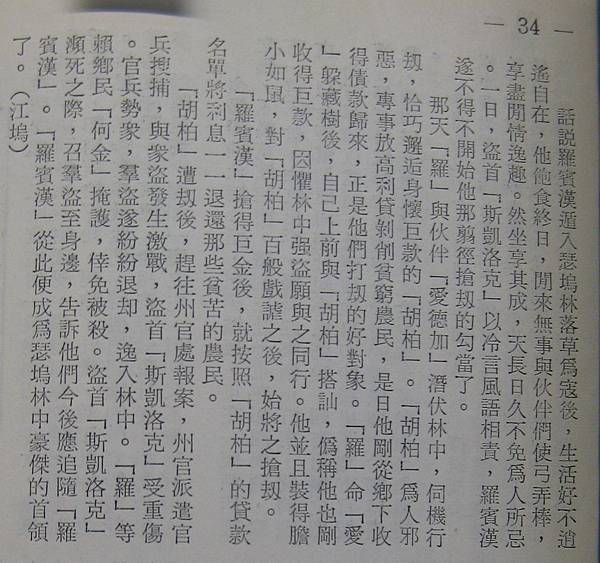 — 34 —
話說羅賓漢遁入瑟塢林落草爲寇後，生活好不逍
遙自在，他飽食終日，閒來無事與伙伴們使弓弄棒，
享盡閒情逸趣。然坐享其成，天長日久不免爲人所忌
。一日，盜首「斯凱洛克」以冷言風語相責，羅賓漢
遂不得不開始他那翦徑搶刼的勾當了。
那天「羅」與伙伴「愛德加」潛伏林中，伺機行
刼，恰巧邂逅身懷巨款的「胡柏」。「胡柏」爲人邪
惡，專事放高利貸剝削貧窮農民，是日他剛從鄉下收
得債款歸來，正是他們打刼的好對象。「羅」命「愛
」躱藏樹後，自己上前與「胡柏」搭訕，僞稱他也剛
收得巨款，因懼林中强盜願與之同行。他並且裝得膽
小如鼠，對「胡柏」百般戲謔之後，始將之搶刼。
「羅賓漢」搶得巨金後，就按照「胡柏」的貸款
名單將利息一一退還那些貧苦的農民。
「胡柏」遭刼後，趕往州官處報案，州官派遣官
兵搜捕，與衆盜發生激戰，盜首「斯凱洛克」受重傷
。官兵勢衆，羣盜遂紛紛退却，逸入林中。「羅」等
賴鄉民「何金」掩護，倖免被殺。盜首「斯凱洛克」
瀕死之際，召羣盜至身邊，告訴他們今後應追隨「羅
賓漢」。「羅賓漢」從此便成爲瑟塢林中豪傑的首領
了。（江塢）